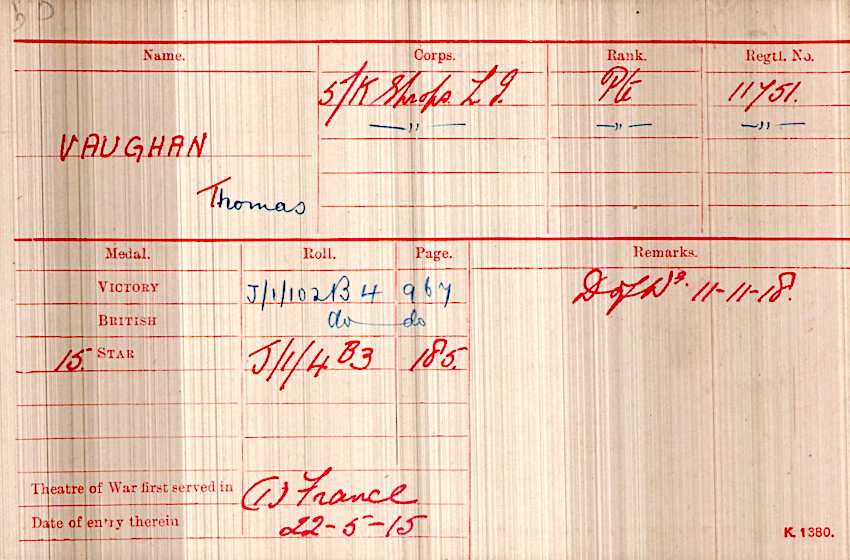 Name. Corps. Rank. Regtl. No.
5/K Shrops L I. Pte 11751.
—"— —"— —"—
VAUGHAN
Thomas
Medal. Roll. Page. Remarks.
VICTORY J/1/102B4 967 D of Wds. 11-11-18.
BRITISH do do
15. STAR J/1/4 B3 185.
Theatre of War first served in (1) France
Date of entry therein 22-5-15
K. 1380.